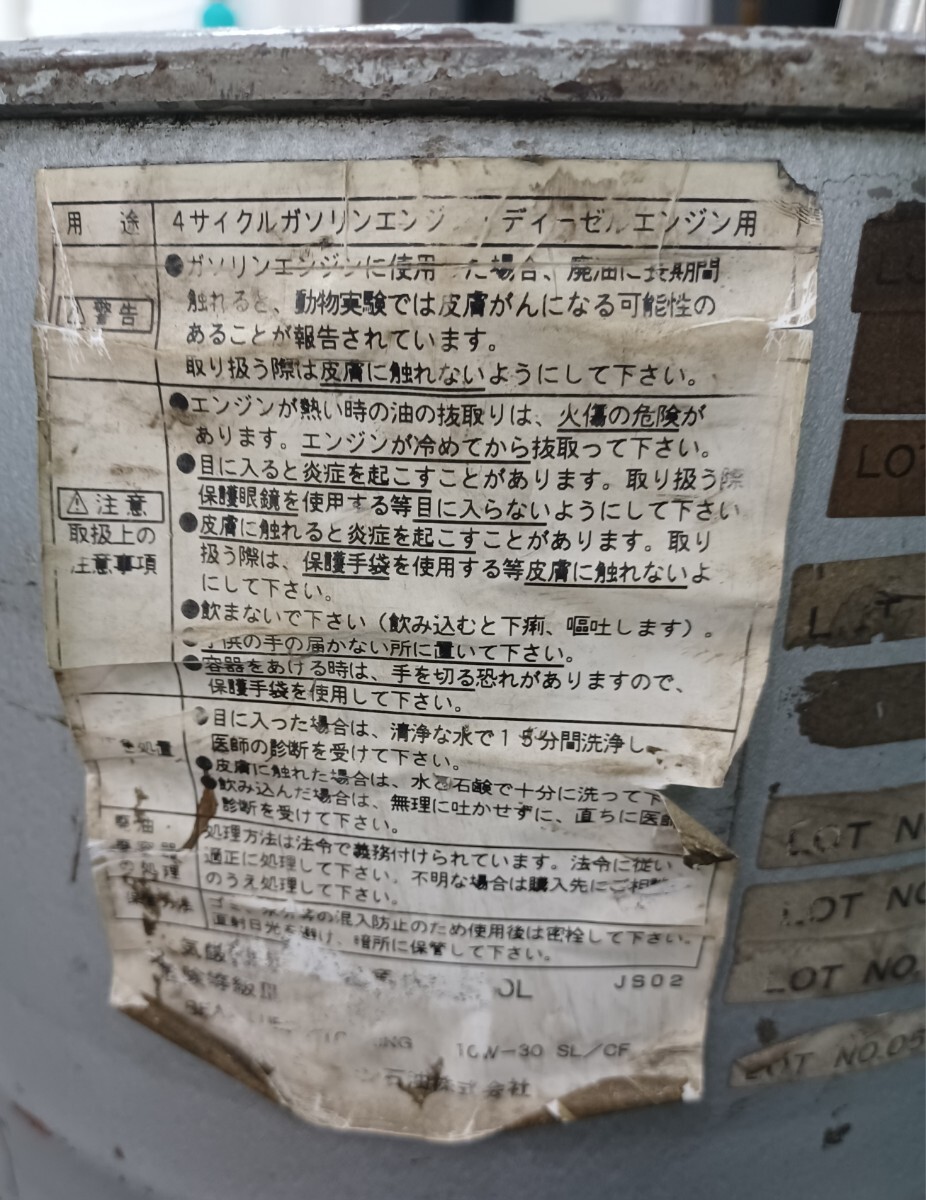 用途 4サイクルガソリンエンジ ディーゼルエンジン用
●ガソリンエンジンに使用 た場合、廃油に長期間
⚠警告 触れると、動物実験では皮膚がんになる可能性の
あることが報告されています。
取り扱う際は皮膚に触れないようにして下さい。
●エンジンが熱い時の油の抜取りは、火傷の危険が
あります。エンジンが冷めてから抜取って下さい。
●目に入ると炎症を起こすことがあります。取り扱う際
⚠注意 保護眼鏡を使用する等目に入らないようにして下さい
取扱上の ●皮膚に触れると炎症を起こすことがあります。取り
注意事項 扱う際は、保護手袋を使用する等皮膚に触れないよ
にして下さい。
●飲まないで下さい(飲み込むと下痢、嘔吐します)。
供の手の届かない所に置いて下さい。
●容器をあける時は、手を切る恐れがありますので、
保護手袋を使用して下さい。
目に入った場合は、清浄な水で15分間洗浄し
処置 医師の診断を受けて下さい。
●皮膚に触れた場合は、水と石鹸で十分に洗って下
●飲み込んだ場合は、無理に吐かせずに、直ちに医師
診断を受けて下さい。
廃油 処理方法は法令で義務付けられています。法令に従い
適正に処理して下さい。不明な場合は購入先にご相談
の処理 のうえ処理して下さい。
の混入防止のため使用後は密栓して下さい。
直射日光を避け、暗所に保管して下さい。
OL JS02
等級III
NG 10W-30 SL/CF
石油株式会社
LOT
LOT
LOT N
LOT NO
LOT NO.
LOT NO.05